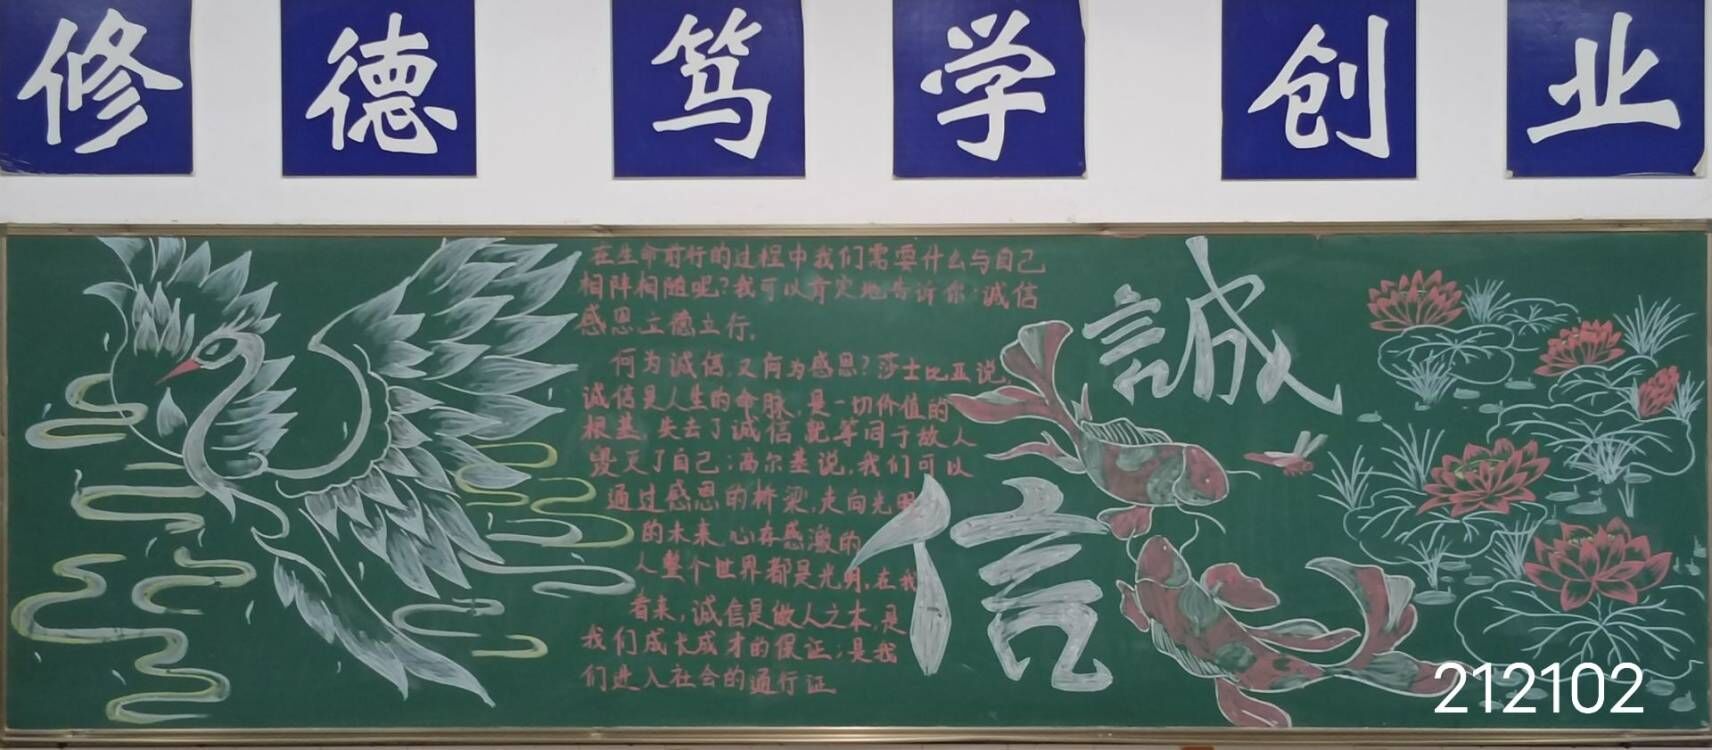 修德笃学创业
在生命前行的过程中我们需要什么与自己
相伴相随呢?我可以肯定地告诉你:诚信
感恩立德立行。
何为诚信,又何为感恩?莎士比亚说,
诚信是人生的命脉,是一切价值的
根基,失去了诚信,就等同于敌人
毁灭了自己;高尔基说,我们可以
通过感恩的桥梁,走向光明
的未来,心存感激的
人整个世界都是光明,在我
看来,诚信是做人之本,是
我们成长成才的保证;是我
们进入社会的通行证
誠
信
212102